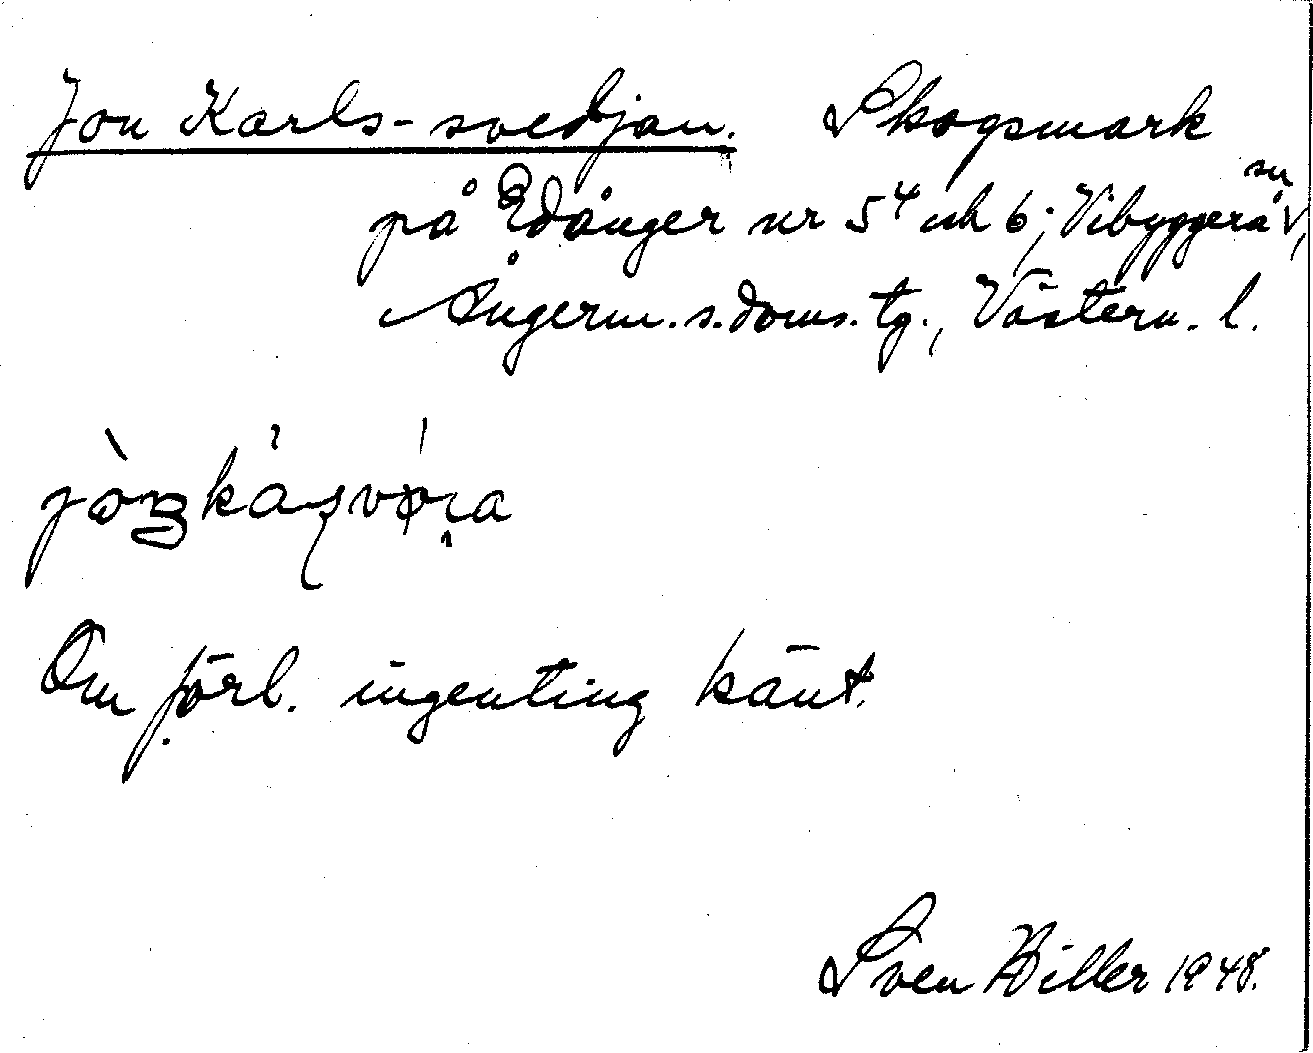 Jon Karls-svedjan. Skogsmark
på Edånger nr 5⁴ och 6; Vibyggerå sn,
Ångerm. s. doms. tg., Västern. l.
Om förb. ingenting känt.
Sven Hiller 1948.